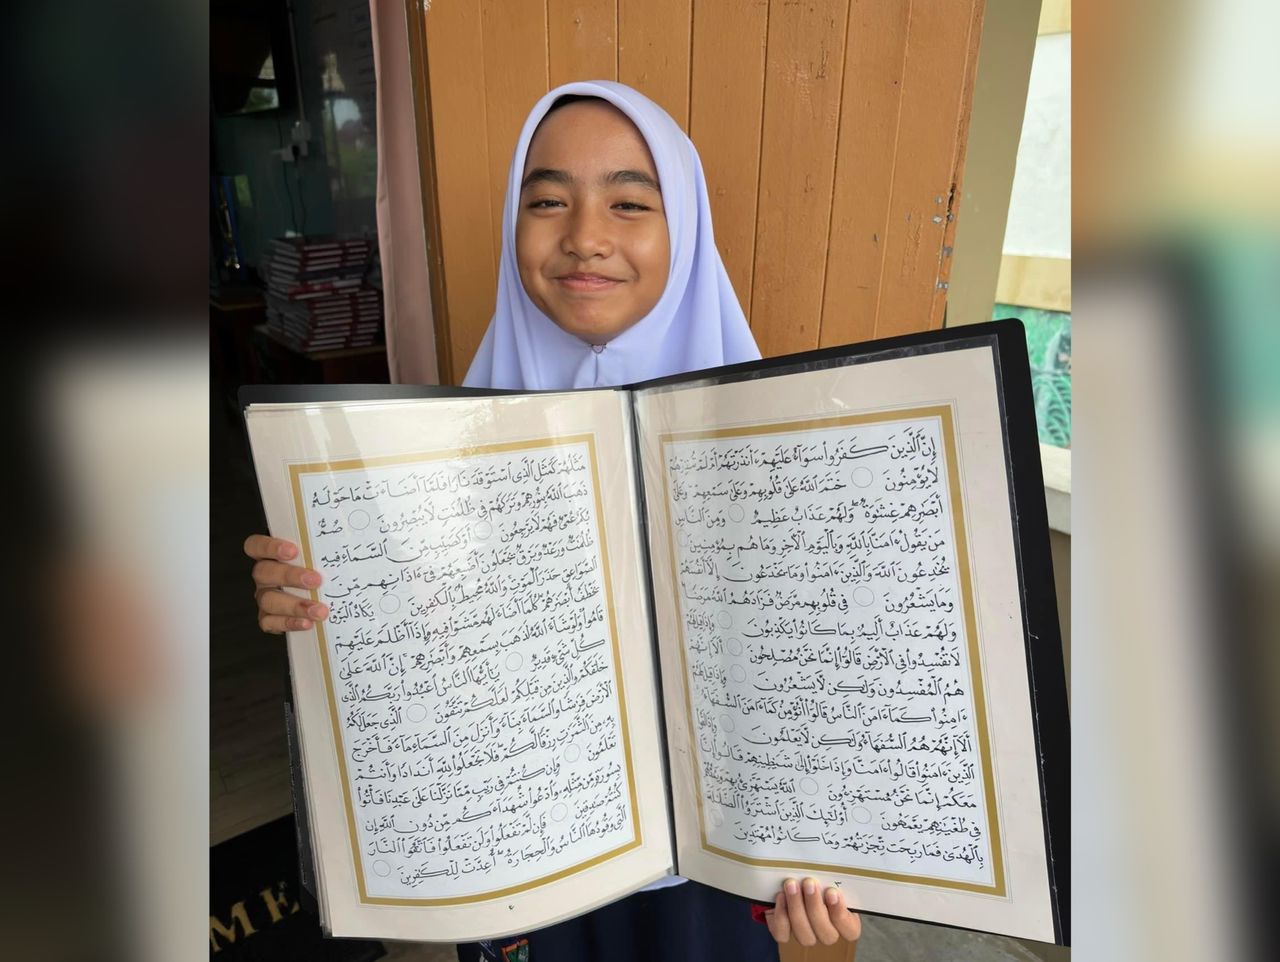 إِنَّ ٱلَّذِينَ كَفَرُوا۟ سَوَآءٌ عَلَيْهِمْ ءَأَنذَرْتَهُمْ أَمْ لَمْ تُنذِرْهُمْ
لَا يُؤْمِنُونَ ○ خَتَمَ ٱللَّهُ عَلَىٰ قُلُوبِهِمْ وَعَلَىٰ سَمْعِهِمْ وَعَلَىٰ
أَبْصَٰرِهِمْ غِشَٰوَةٌ وَلَهُمْ عَذَابٌ عَظِيمٌ ○ وَمِنَ ٱلنَّاسِ
مَن يَقُولُ ءَامَنَّا بِٱللَّهِ وَبِٱلْيَوْمِ ٱلْءَاخِرِ وَمَا هُم بِمُؤْمِنِينَ ○
يُخَٰدِعُونَ ٱللَّهَ وَٱلَّذِينَ ءَامَنُوا۟ وَمَا يَخْدَعُونَ إِلَّآ أَنفُسَهُمْ
وَمَا يَشْعُرُونَ ○ فِى قُلُوبِهِم مَّرَضٌ فَزَادَهُمُ ٱللَّهُ مَرَضًا
وَلَهُمْ عَذَابٌ أَلِيمٌۢ بِمَا كَانُوا۟ يَكْذِبُونَ ○ وَإِذَا قِيلَ لَهُمْ
لَا تُفْسِدُوا۟ فِى ٱلْأَرْضِ قَالُوٓا۟ إِنَّمَا نَحْنُ مُصْلِحُونَ ○ أَلَآ إِنَّهُمْ
هُمُ ٱلْمُفْسِدُونَ وَلَٰكِن لَّا يَشْعُرُونَ ○ وَإِذَا قِيلَ لَهُمْ
ءَامِنُوا۟ كَمَآ ءَامَنَ ٱلنَّاسُ قَالُوٓا۟ أَنُؤْمِنُ كَمَآ ءَامَنَ ٱلسُّفَهَآءُ
أَلَآ إِنَّهُمْ هُمُ ٱلسُّفَهَآءُ وَلَٰكِن لَّا يَعْلَمُونَ ○ وَإِذَا لَقُوا۟
ٱلَّذِينَ ءَامَنُوا۟ قَالُوٓا۟ ءَامَنَّا وَإِذَا خَلَوْا۟ إِلَىٰ شَيَٰطِينِهِمْ قَالُوٓا۟ إِنَّا
مَعَكُمْ إِنَّمَا نَحْنُ مُسْتَهْزِءُونَ ○ ٱللَّهُ يَسْتَهْزِئُ بِهِمْ وَيَمُدُّهُمْ
فِى طُغْيَٰنِهِمْ يَعْمَهُونَ ○ أُو۟لَٰٓئِكَ ٱلَّذِينَ ٱشْتَرَوُا۟ ٱلضَّلَٰلَةَ
بِٱلْهُدَىٰ فَمَا رَبِحَت تِّجَٰرَتُهُمْ وَمَا كَانُوا۟ مُهْتَدِينَ
٣
مَثَلُهُمْ كَمَثَلِ ٱلَّذِى ٱسْتَوْقَدَ نَارًا فَلَمَّآ أَضَآءَتْ مَا حَوْلَهُۥ
ذَهَبَ ٱللَّهُ بِنُورِهِمْ وَتَرَكَهُمْ فِى ظُلُمَٰتٍ لَّا يُبْصِرُونَ ○ صُمٌّۢ
بُكْمٌ عُمْىٌ فَهُمْ لَا يَرْجِعُونَ ○ أَوْ كَصَيِّبٍ مِّنَ ٱلسَّمَآءِ فِيهِ
ظُلُمَٰتٌ وَرَعْدٌ وَبَرْقٌ يَجْعَلُونَ أَصَٰبِعَهُمْ فِىٓ ءَاذَانِهِم مِّنَ
ٱلصَّوَٰعِقِ حَذَرَ ٱلْمَوْتِ وَٱللَّهُ مُحِيطٌۢ بِٱلْكَٰفِرِينَ ○ يَكَادُ ٱلْبَرْقُ
يَخْطَفُ أَبْصَٰرَهُمْ كُلَّمَآ أَضَآءَ لَهُم مَّشَوْا۟ فِيهِ وَإِذَآ أَظْلَمَ عَلَيْهِمْ
قَامُوا۟ وَلَوْ شَآءَ ٱللَّهُ لَذَهَبَ بِسَمْعِهِمْ وَأَبْصَٰرِهِمْ إِنَّ ٱللَّهَ عَلَىٰ
كُلِّ شَىْءٍ قَدِيرٌ ○ يَٰٓأَيُّهَا ٱلنَّاسُ ٱعْبُدُوا۟ رَبَّكُمُ ٱلَّذِى
خَلَقَكُمْ وَٱلَّذِينَ مِن قَبْلِكُمْ لَعَلَّكُمْ تَتَّقُونَ ○ ٱلَّذِى جَعَلَ لَكُمُ
ٱلْأَرْضَ فِرَٰشًا وَٱلسَّمَآءَ بِنَآءً وَأَنزَلَ مِنَ ٱلسَّمَآءِ مَآءً فَأَخْرَجَ
بِهِۦ مِنَ ٱلثَّمَرَٰتِ رِزْقًا لَّكُمْ فَلَا تَجْعَلُوا۟ لِلَّهِ أَندَادًا وَأَنتُمْ
تَعْلَمُونَ ○ وَإِن كُنتُمْ فِى رَيْبٍ مِّمَّا نَزَّلْنَا عَلَىٰ عَبْدِنَا فَأْتُوا۟
بِسُورَةٍ مِّن مِّثْلِهِۦ وَٱدْعُوا۟ شُهَدَآءَكُم مِّن دُونِ ٱللَّهِ إِن
كُنتُمْ صَٰدِقِينَ ○ فَإِن لَّمْ تَفْعَلُوا۟ وَلَن تَفْعَلُوا۟ فَٱتَّقُوا۟ ٱلنَّارَ
ٱلَّتِى وَقُودُهَا ٱلنَّاسُ وَٱلْحِجَارَةُ أُعِدَّتْ لِلْكَٰفِرِينَ ○
٤
ME